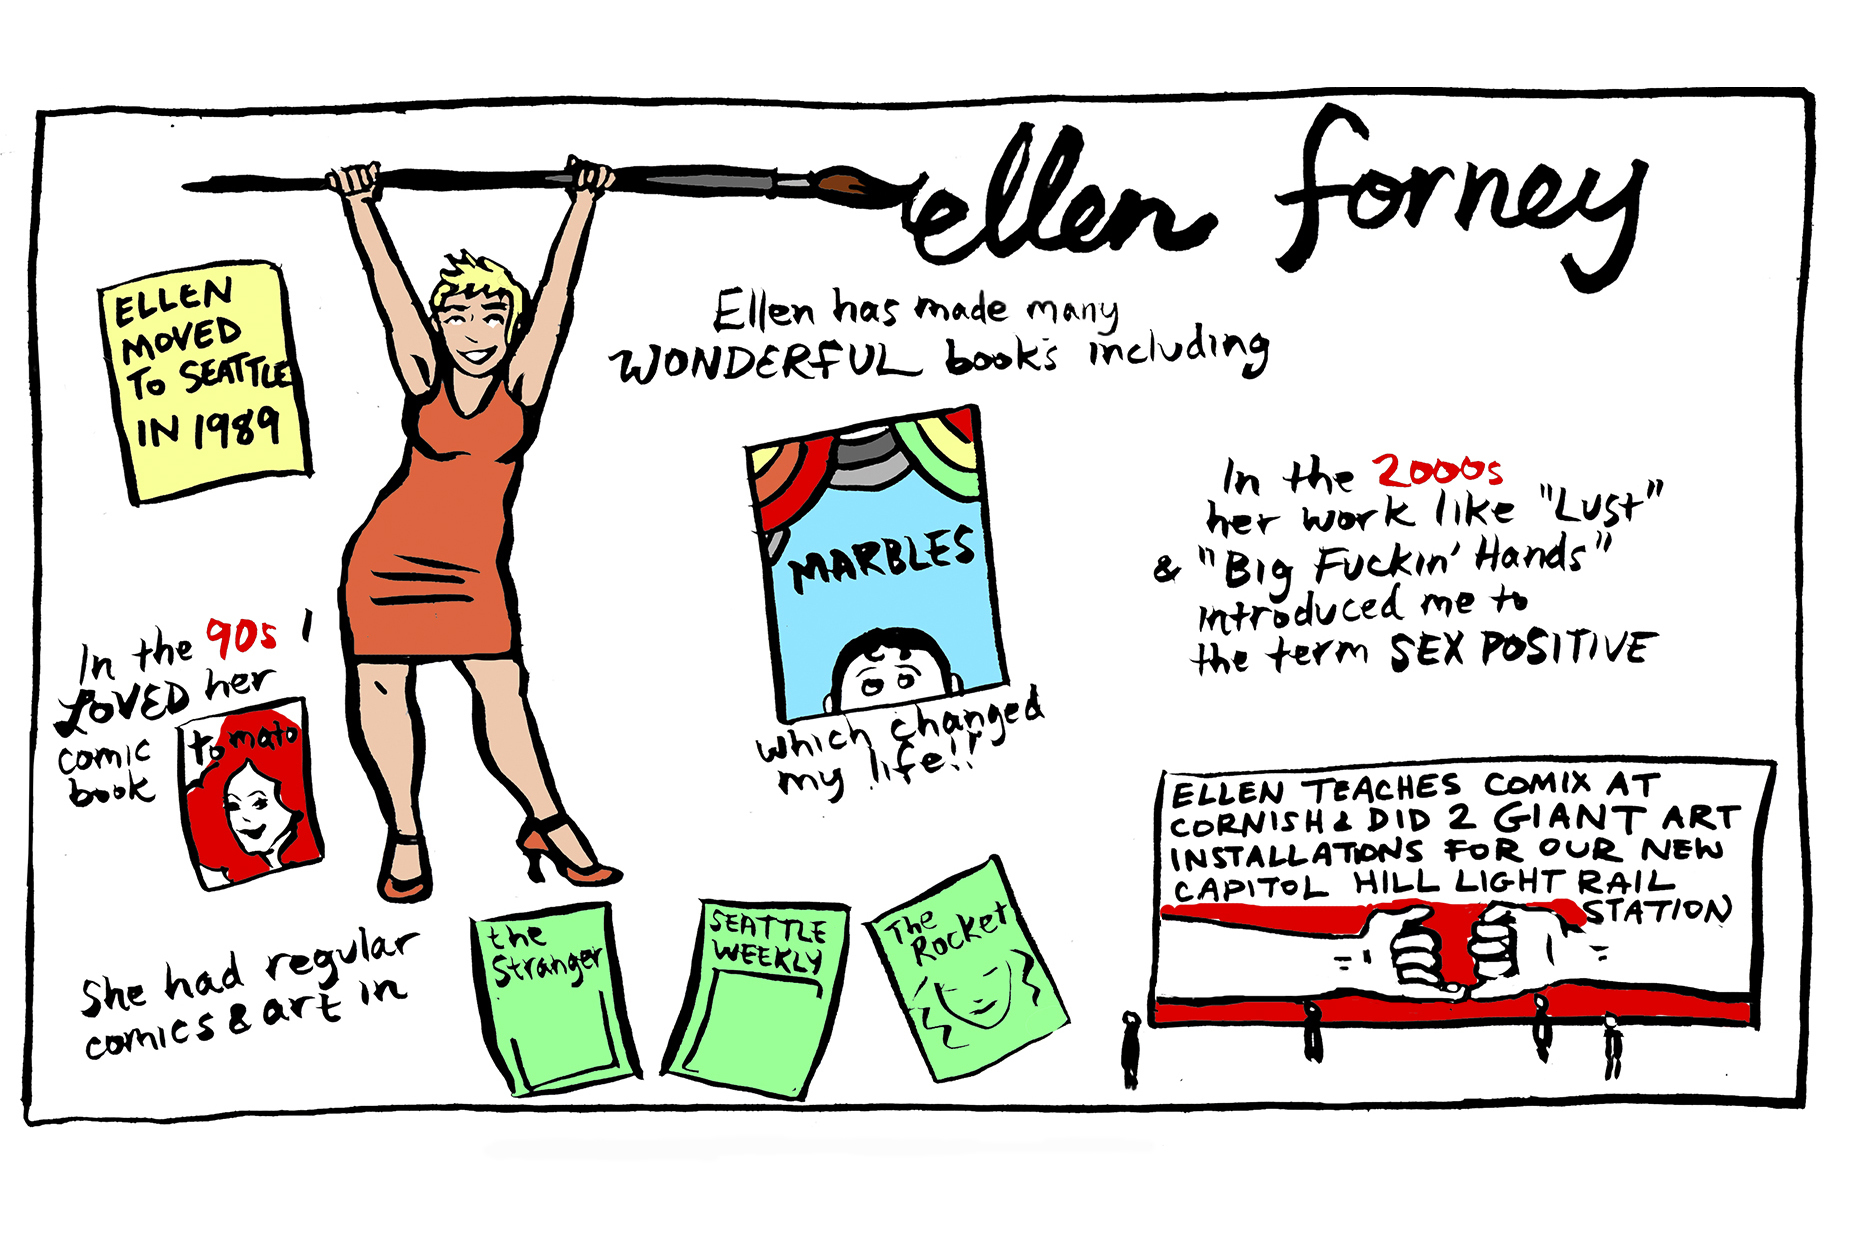 ellen forney
ELLEN
MOVED
TO SEATTLE
IN 1989
Ellen has made many
WONDERFUL books including
MARBLES
which changed
my life!!
In the 2000s
her work like "Lust"
& "Big Fuckin' Hands"
introduced me to
the term SEX POSITIVE
In the 90s I
LOVED her
comic
book
tomato
She had regular
comics & art in
the
Stranger
SEATTLE
WEEKLY
The
Rocket
ELLEN TEACHES COMIX AT
CORNISH & DID 2 GIANT ART
INSTALLATIONS FOR OUR NEW
CAPITOL HILL LIGHT RAIL
STATION